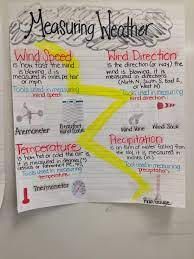 Measuring Weather
Wind Speed
is how fast the wind
is blowing, it is
measured in miles per hour
or mph
Tools used in measuring
wind speed:
Anemometer
Wind Direction
is the direction (or way) wind
is blowing, it is measured in
North (N), South (S), East (E),
or West (W)
Tools used in measuring
wind direction:
Wind Vane
Wind Sock
Temperature
is how hot or cold the air
is, it is measured in degrees (°)
Tools used in measuring
temperature:
Thermometer
Precipitation
is any form of water falling
from the sky, it is measured
in inches
Tools used in measuring
Rain Gauge